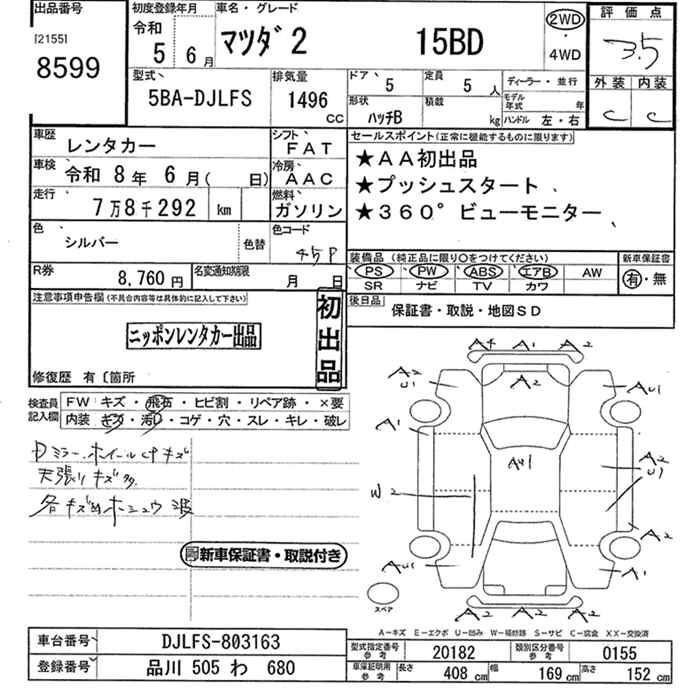 出品番号
[2155]
8599
初度登録年月
令和
5 6月
車名・グレード
マツダ2 15BD
2WD
・
4WD
評価点
3.5
外装 内装
C C
型式
5BA-DJLFS
排気量
1496
CC
ドア 5
定員 5 人
形状 ハッチB
積載 kg
ディーラー・並行
モデル年式 年
ハンドル 左・右
車歴
レンタカー
シフト
FAT
車検
令和 8年 6月( 日)
冷房
AAC
走行
7万8千292 km
燃料
ガソリン
色
シルバー
色替
色コード
45P
R券
8,760円
名変通知期限
月 日
セールスポイント(正常に機能するものに限ります)
★AA初出品
★プッシュスタート
★360°ビューモニター
装備品(純正品に限り〇をつけてください)
PS PW ABS エアB AW
SR ナビ TV カワ
新車保証書
有・無
後日品
保証書・取説・地図SD
注意事項申告欄(不具合内容等は具体的に記入して下さい)
ニッポンレンタカー出品
初出品
修復歴 有〔箇所
検査員記入欄
FW キズ・飛石・ヒビ割・リペア跡・×要
内装 キズ・汚れ・コゲ・穴・スレ・キレ・破レ
Dミラー.ホイールCPキズ
天張リキズ多
各キズ凹ホシュウ
新車保証書・取説付き
A4 A1 A2
A2
A2
U1
AU1
A1
AU1
A2
U1
W2
A2
AU1
A1
A2 A2 A2
スペア
A-キズ E-エクボ U-凹み W-補修跡 S-サビ C-腐食 XX-交換済
車台番号
DJLFS-803163
登録番号
品川 505 わ 680
型式指定番号 参考
20182
類別区分番号 参考
0155
車庫証明用 参考
長さ 408 cm
幅 169 cm
高さ 152 cm